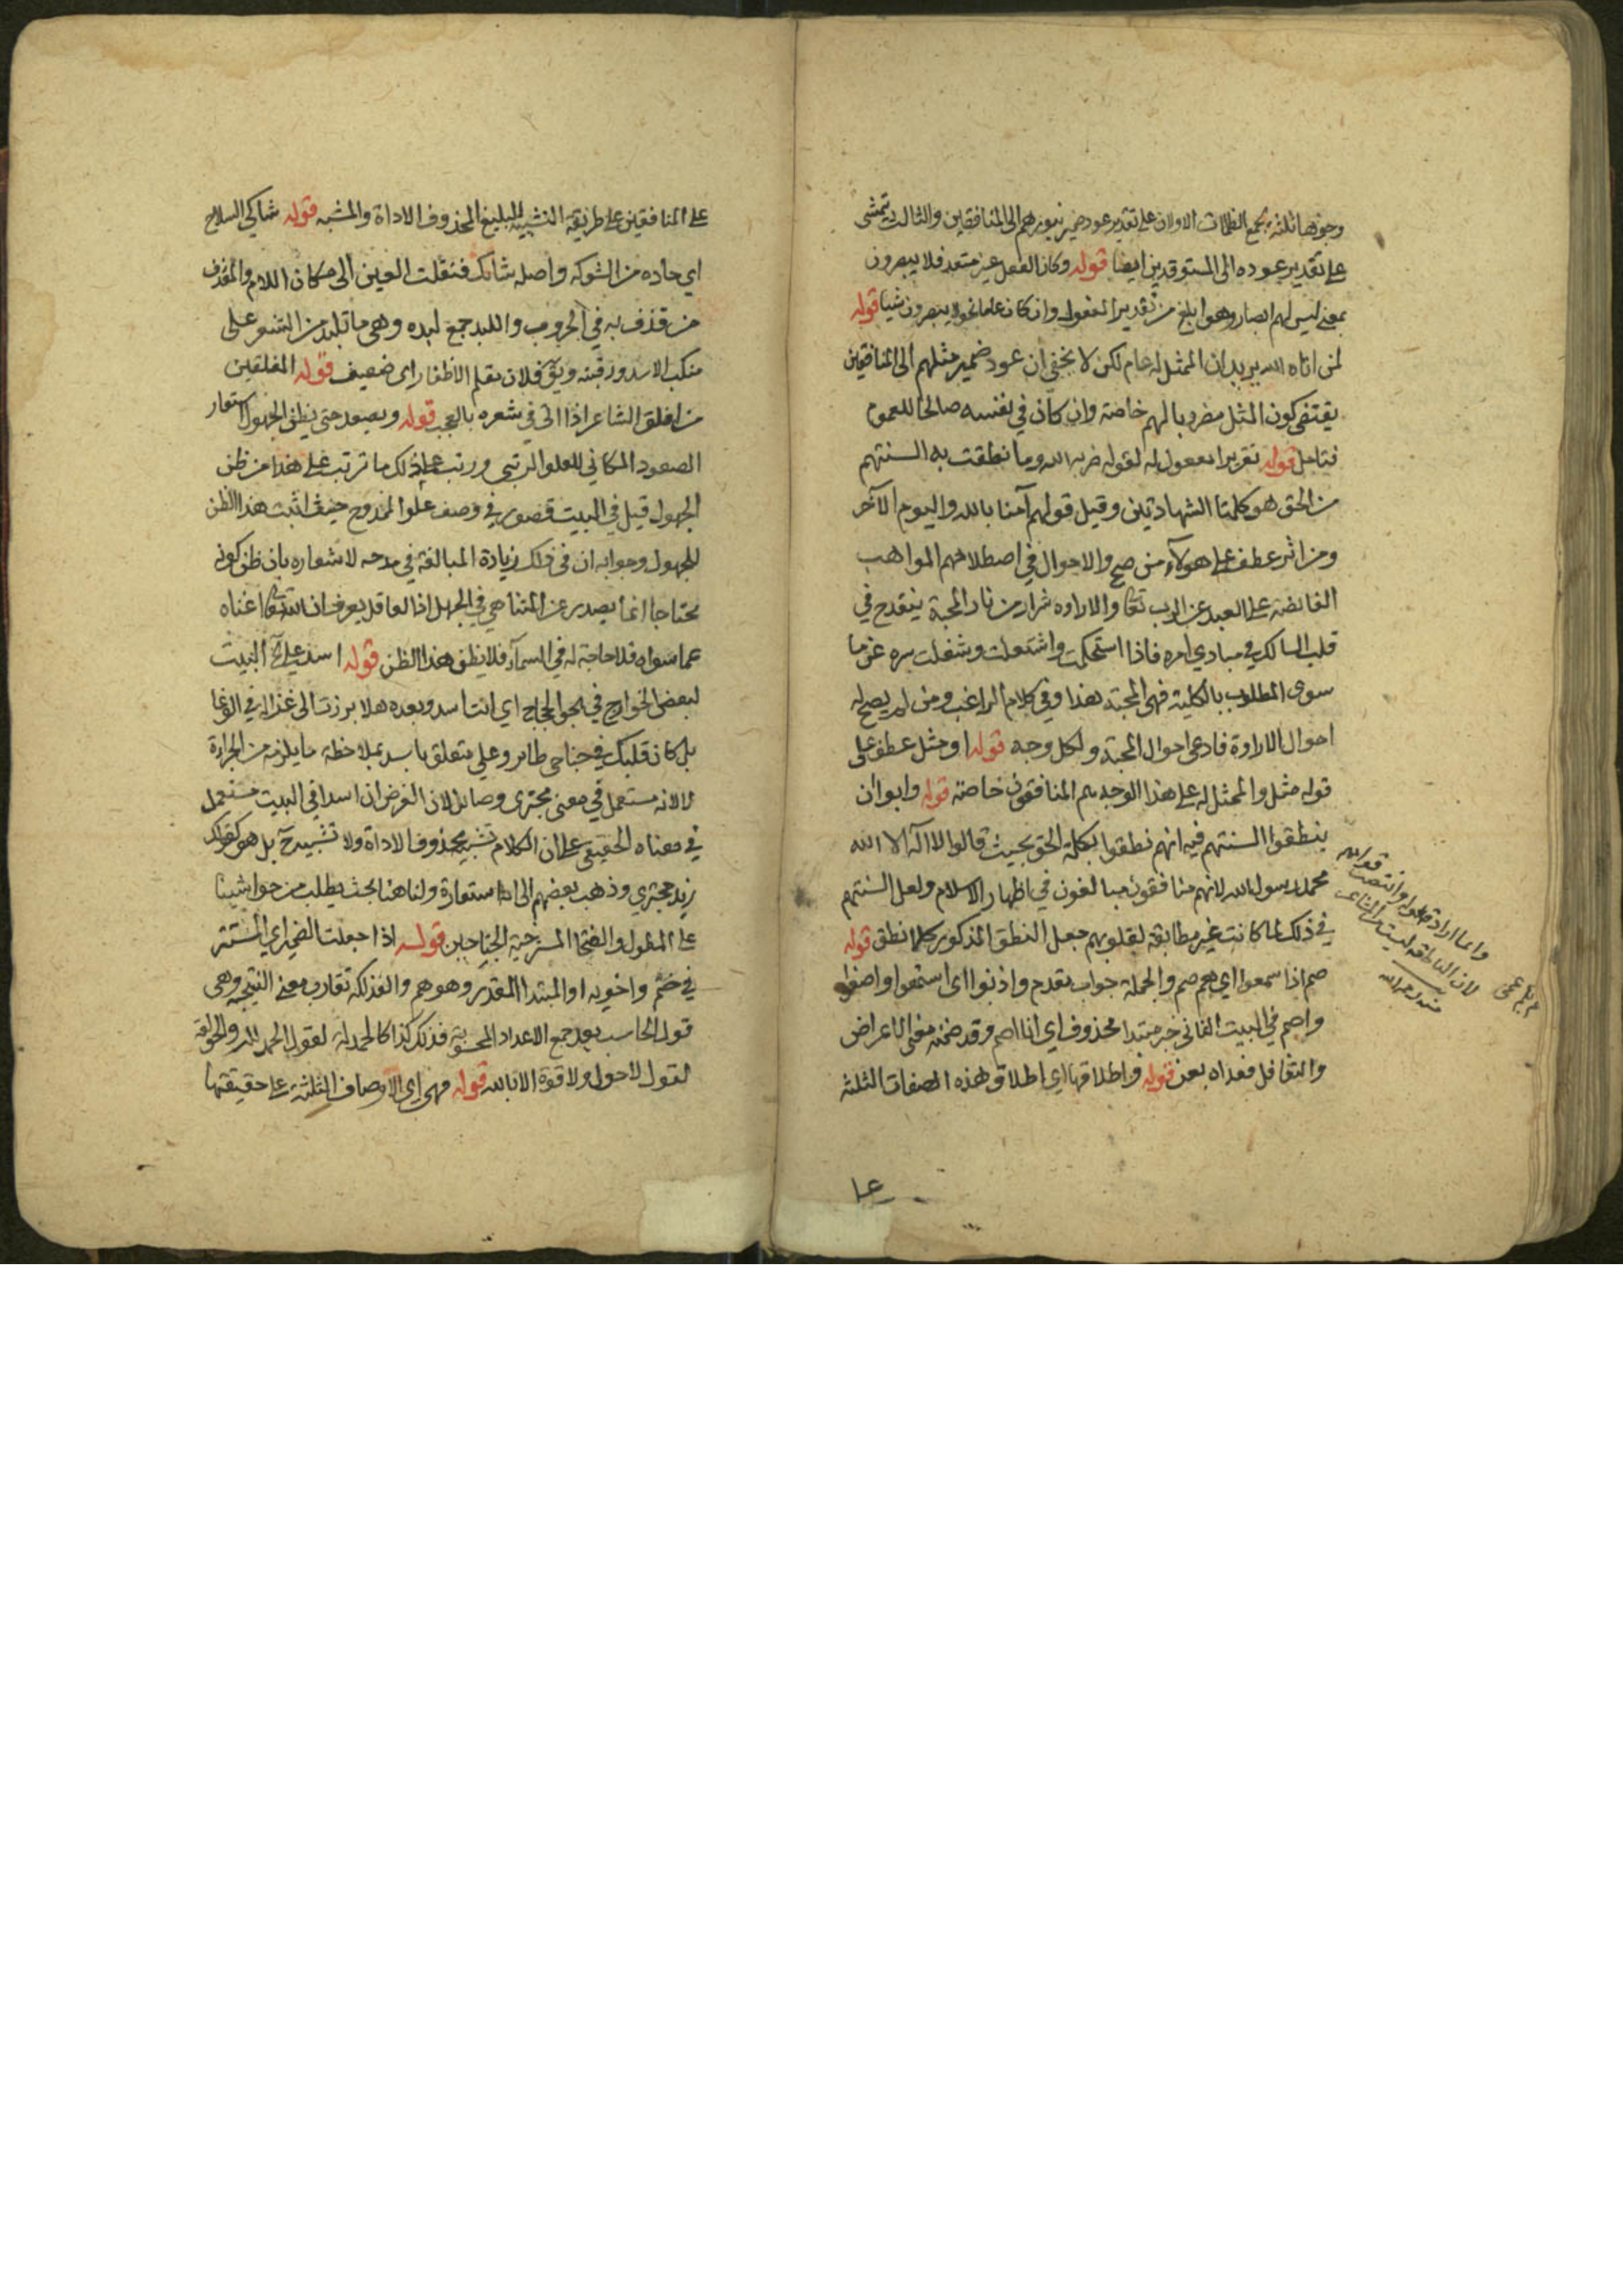 وجوزها ثلثة بجمع الظلمات الاولان على تقدير عود ضمير بنورهم الى المنافقين والثالث يتمشى
على تقدير عوده الى المستوقدين ايضا قوله وكان الفعل غير متعد فلا يبصرون
بمعنى ليس لهم ابصار وهو ابلغ من تقدير المفعول وان كان عاما نحو لا يبصرون شيا قوله
لمن اتاه الله يريد ان الممثل له عام لكن لا يخفى ان عود ضمير مثلهم الى المنافقين
يقتضى كون المثل مضروبا لهم خاصة وان كان في نفسه صالحا للعموم
فتامل قوله تقريرا مفعول له لقوله ضربه الله وما نطقت به السنتهم
من الحق هو كلمتا الشهادتين وقيل قولهم آمنا بالله واليوم الآخر
ومن اثر عطف على هولآء من صح والاحوال في اصطلاحهم المواهب
الفائضة على العبد عن الرب تعا والاراده شرار من نار المحبة ينقدح في
قلب السالك في مبادي امره فاذا استحكمت واشتعلت وشغلت سره عن ما
سوى المطلوب بالكلية فهى المحبة هذا وفي كلام الراغب ومن لم يصح له
احوال الارادة فادعى احوال المحبة ولكل وجه قوله او مثل عطف على
قوله مثل والممثل له على هذا الوجه هم المنافقون خاصة قوله وابوا ان
ينطقوا السنتهم فيه انهم نطقوا بكلمة الحق بحيث قالوا لا اله الا الله
محمد رسول الله لانهم منافقون مبالغون في اظهار الاسلام ولعل السنتهم
في ذلك لما كانت غير مطابقة لقلوبهم جعل النطق المذكور كلا نطق قوله
صم اذا سمعوا اي هم صم والجملة جواب تقدم واذنوا اى استمعوا واصغوا
واصم في البيت الثاني خبر مبتدا محذوف اي انا اصم وقد ضمنه معنى الاعراض
والتغافل فعداه بعن قوله واطلاقها اي اطلاق هذه الصفات الثلثة
على
على المنافقين على طريقة التشبيه البليغ المحذوف الاداة والمشبه قوله شاكي السلاح
اي حاده من الشوكة واصله شائك فنقلت العين الى مكان اللام والمقذف
من قذف به في الحروب واللبد جمع لبده وهي ما تلبد من الشعر على
منكب الاسد ورقبته ويق فلان مقلم الاظفار اى ضعيف قوله المفلقين
من افلق الشاعر اذا اتى في شعره بالعجب قوله ويصعد حتى يظن الجهول استعار
الصعود المكاني للعلو الرتبي ورتب على ذلك ما ترتب على هذا من ظن
الجهول قيل في البيت قصور في وصف علو الممدوح حيث اثبت هذا الظن
للجهول وجوابه ان في ذلك زيادة المبالغة في مدحه لاشعاره بان ظن كونه
محتاجا انما يصدر عن المتناهي في الجهل اذ العاقل يعرف ان الله تعا اغناه
عما سواه فلا حاجة له في السمآء فلا يظن هذا الظن قوله اسد علي البيت
لبعض الخوارج في هجو الحجاج اي انت اسد وبعده هلا برزت الى غزالة في الوغا
بل كان قلبك في جناحي طائر وعلي متعلق باسد بملاحظة ما يلزمه من الجراءة
لا لانه مستعمل في معنى مجترى وصائل لان الغرض ان اسدا في البيت مستعمل
في معناه الحقيقي على ان الكلام تشبيه محذوف الاداة ولا تشبيه ح بل هو كقولك
زيد مجترى وذهب بعضهم الى انه استعارة ولنا هنا بحث يطلب من حواشينا
على المطول والفتخا المسترخية الجناحين قوله اذا جعلت الضمير اي المستتر
في صم واخويه او المبتدا المقدر وهو هم والفذلكة تقارب معنى النتيجة وهي
قول الحاسب بعد جمع الاعداد المحسوبة فذلك كذا كالحمدلة لقول الحمد لله والحولقة
لقول لا حول ولا قوة الا بالله قوله فهي اي الاوصاف الثلثة على حقيقتها